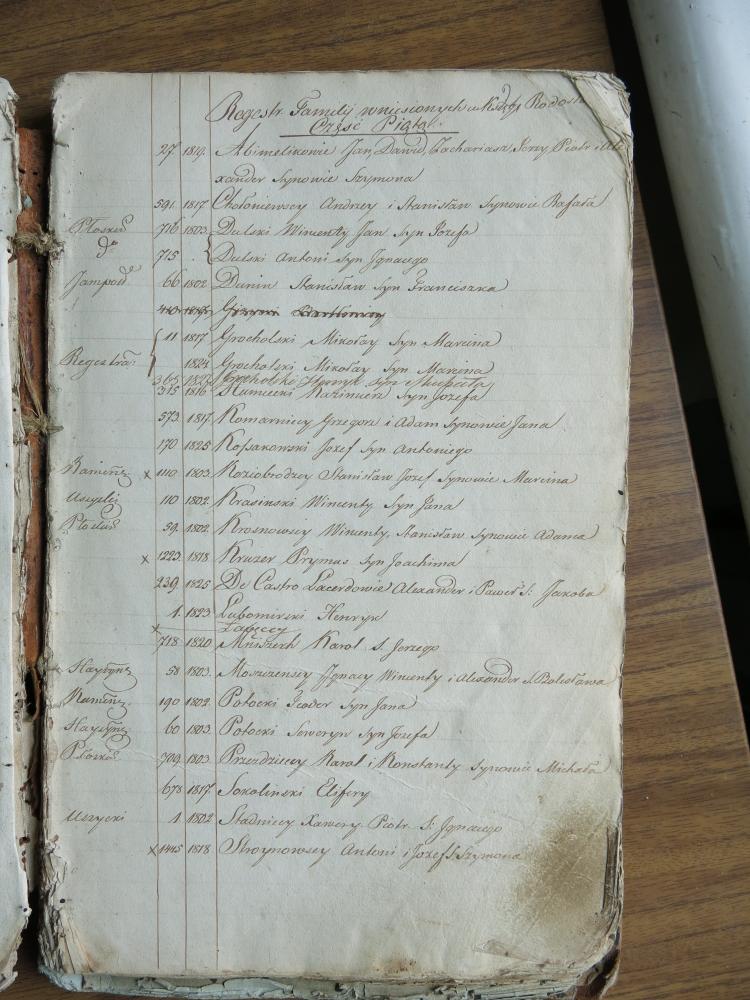 Regestr Familij wniesionych w Księgę Rodo
Część Piąta.
27. 1819. Abimelikowie Jan, Dawid, Zachariasz, Jerzy, Piotr i Ale
xander Synowie Szymona
591. 1817 Chołoniewscy Andrzey i Stanisław Synowie Rafała
Płoskir 716 1803. Dulski Wincenty Jan Syn Józefa
do 715 . Dulski Antoni Syn Ignacego
Jampol 66 1802 Dunin Stanisław Syn Franciszka
11 1817 Grocholski Mikołay Syn Marcina
Regestra 1824 Grocholski Mikołay Syn Marcina
365 1822 Grocholski Henryk syn Michała
315 1816 Humiecki Kazimierz Syn Jozefa
573. 1817. Komarniccy Grzegorz i Adam Synowie Jana
170 1825 Kossakowski Jozef Syn Antoniego
Kamien x 1110 1803. Koziobrodzcy Stanisław Jozef Synowie Marcina
Uszycki 110 1802. Krasinski Wincenty Syn Jana
59. 1802. Krosnowscy Wincenty, Stanisław Synowie Adama
x 1223. 1818 Kruzer Prymus Syn Joachima
239. 1825 De Castro Lacerdowie Alexander i Paweł S: Jakoba
1. 1823 Lubomirski Henryk
x Łapęccy
718 1820 Mniszech Karol S. Jerzego
Haysyn 58 1803. Moszczensey Ignacy Wincenty i Alexander S. Bolesława
Kamien 190 1802. Potocki Teodor Syn Jana
Haysyn 60 1803. Potocki Seweryn Syn Jozefa
709. 1803 Przezdzieccy Karol i Konstanty Synowie Michała
678 1817 Sokolinski Elifery
Uszycki 1 1802 Stadniccy Xawery Piotr S: Ignacego
x 1445 1818 Stroynowscy Antoni i Jozef S. Szymona